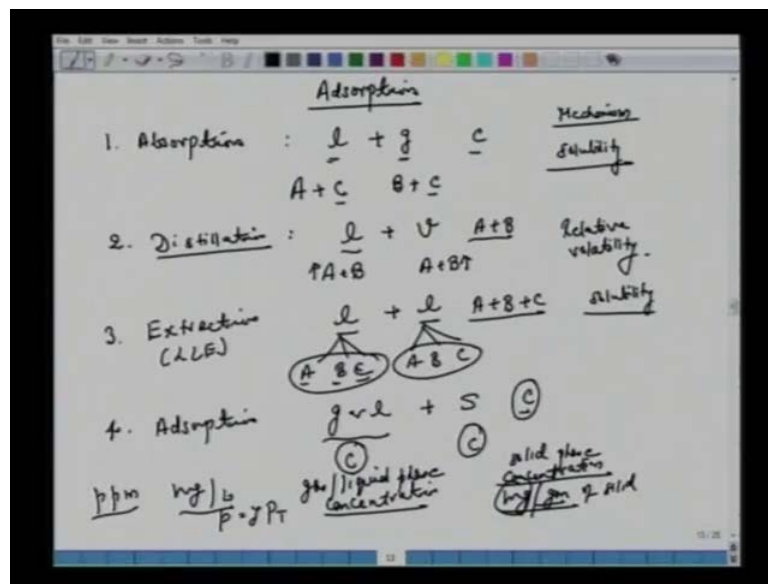 File Edit View Insert Actions Tools Help
Adsorption
Mechanism
1. Absorption : l + g C solubility
A + C B + C
2. Distillation : l + v A+B Relative volatility.
↑A+B A+B↑
3. Extraction (LLE) l + l A+B+C solubility
A B C A B C
4. Adsorption g v l + S C
C C
ppm mg/L gas/liquid phase concentration solid phase concentration
p = y P_T mg/gm of solid
13/25
13